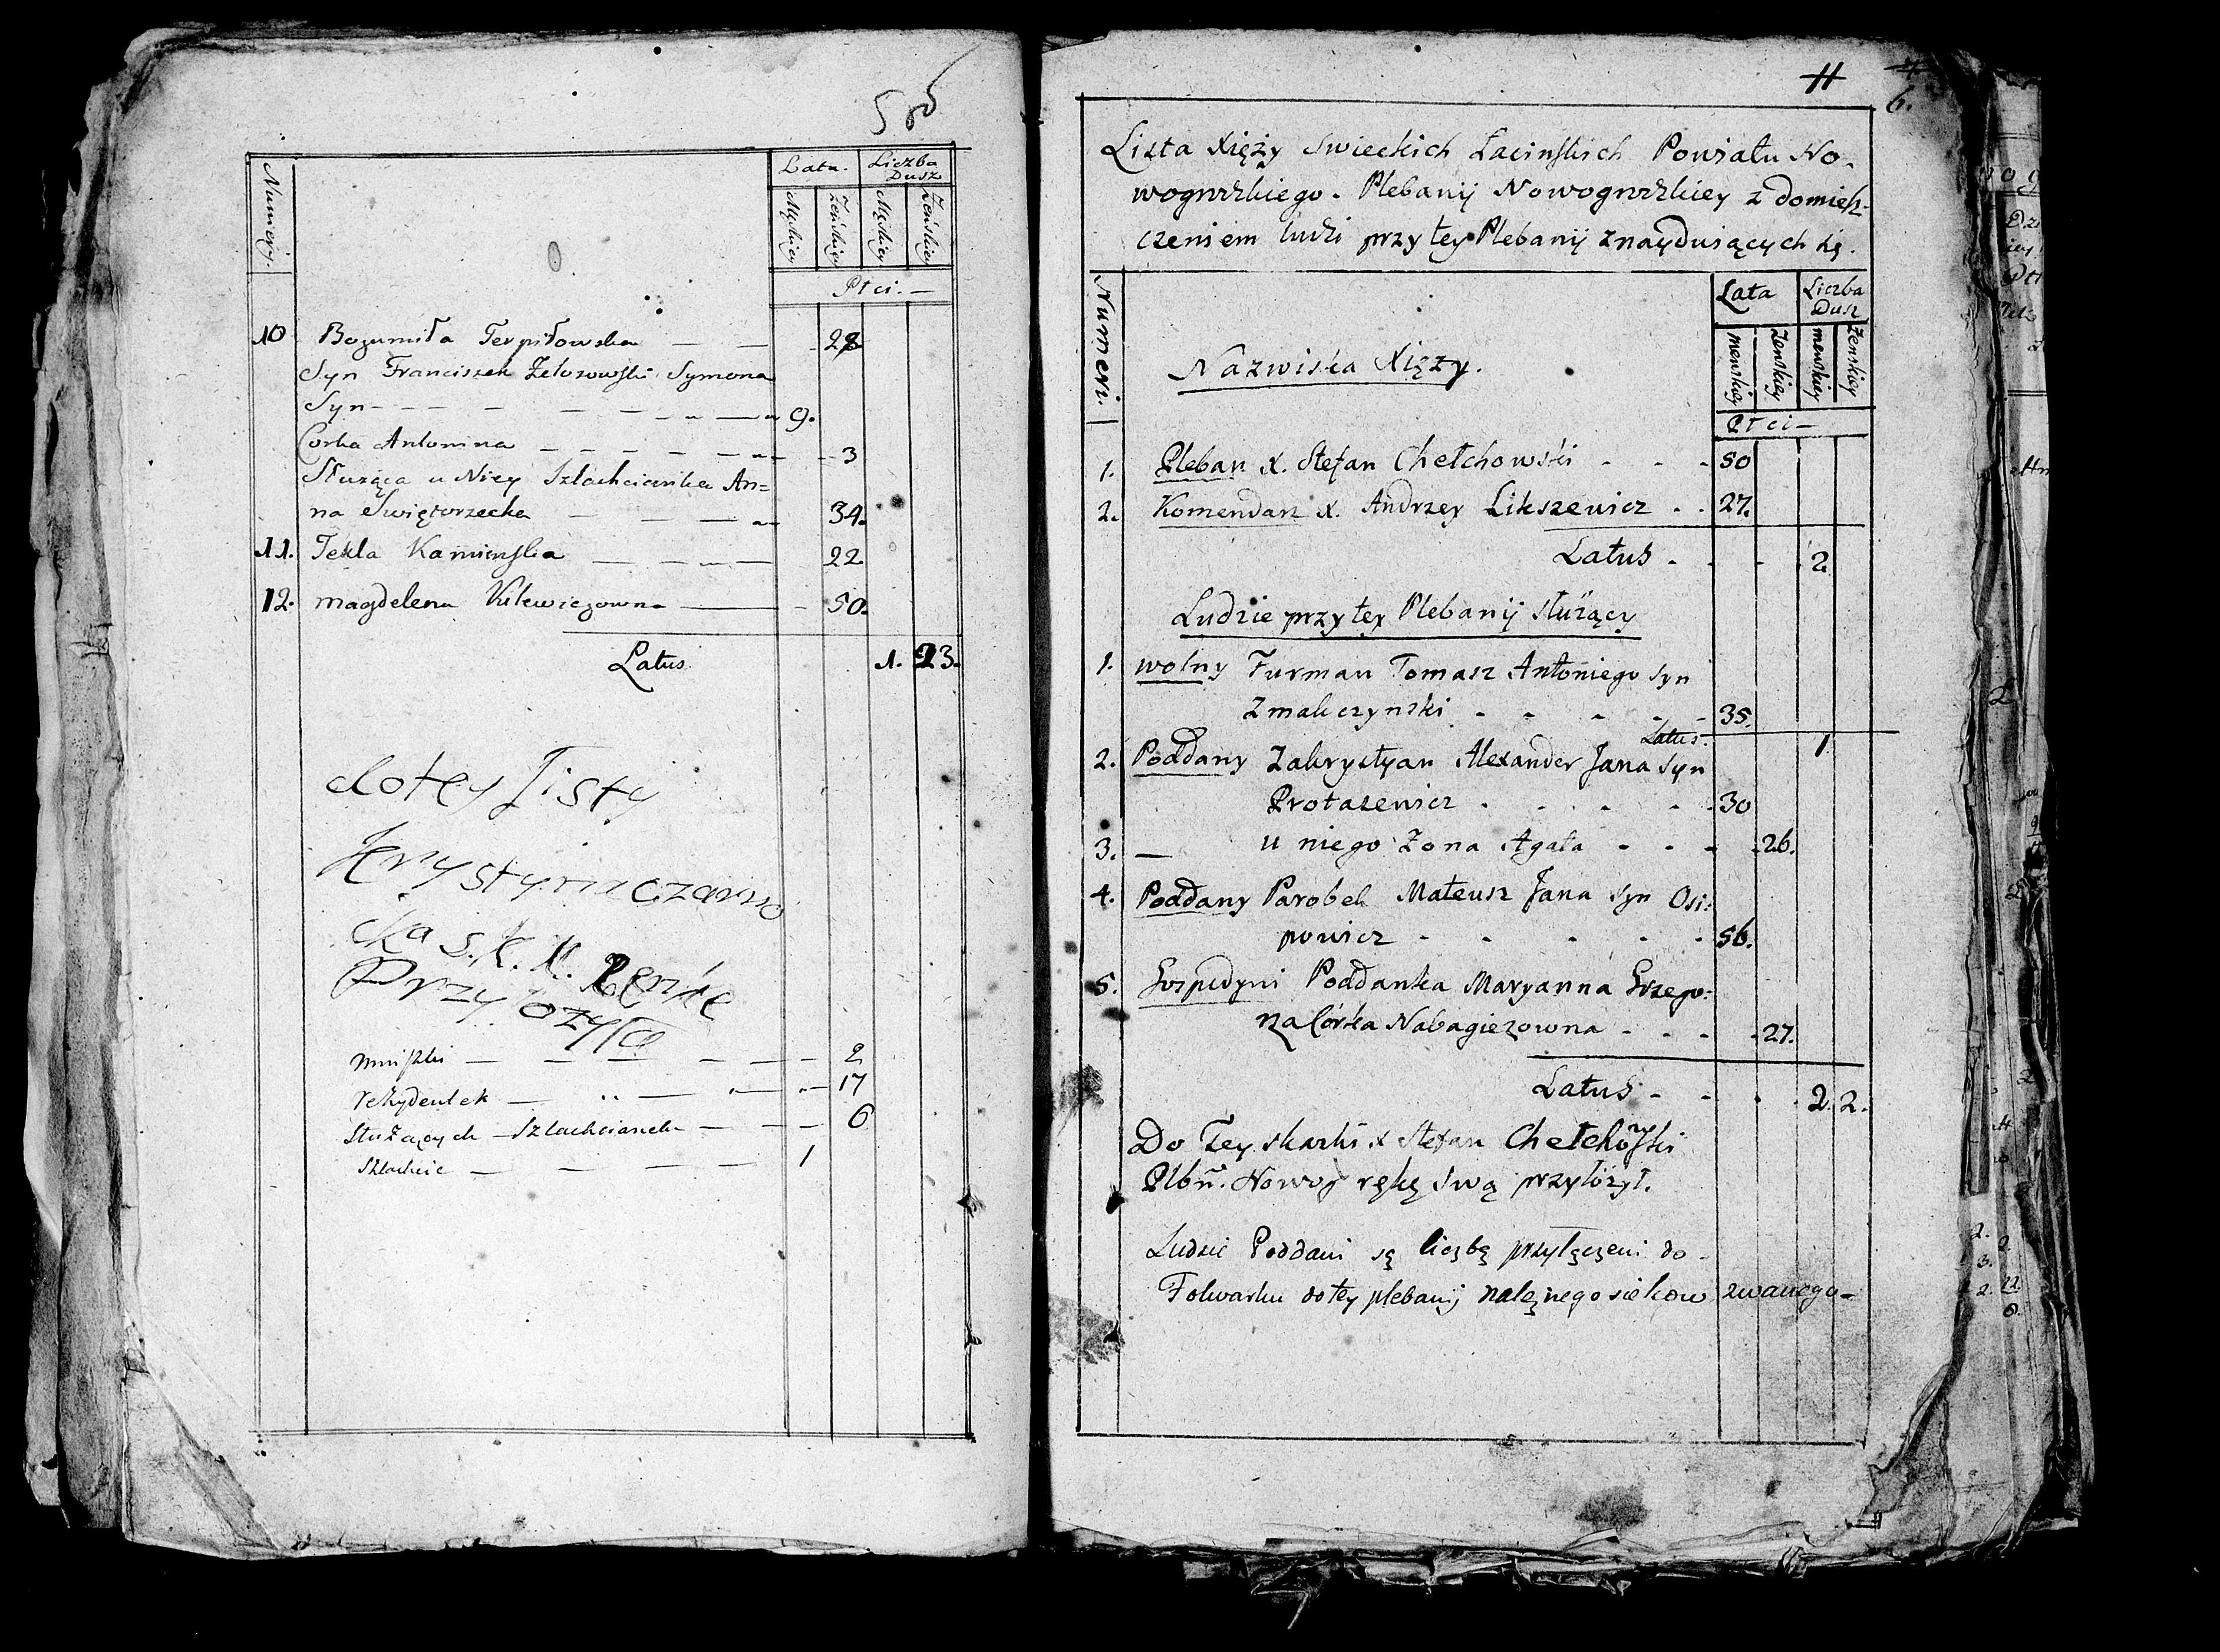 Numery.
Lata.
Liczba
Dusz
Męskiey
Żeńskiey
Męskiey
Żeńskiey
Płci.—
10 Bogumiła Terpiłowska — — 28
Syn Franciszek Żelozowski Symona
Syn - - - — — — — 9.
Corka Antonina — — — — — 3
Służąca u Niey Szlachcianka An=
na Swiętorzecka — — — 34.
11. Tekla Kamienska — — — 22
12. Magdelena Kulewiczowna — 50.
Latus 1. 23.
do tey Listy
Krystyna Czarno
cka S. K. K. Rękę
Przyłozyła
Mniszki — — — — — 2
rezydentek — — — 17
Służących — Szlachcianek — — — 6
Szlachcic — — — — 1
11
6.
Lista Xięży Swieckich Łacinskich Powiatu No-
wogrodzkiego. Plebanij Nowogrodzkiey z domiesz-
czeniem ludzi przy tey Plebanij znayduiących się.
Numeri.
Nazwiska Xięży.
Lata
Liczba
Dusz
menskiey
Zenskiey
menskiey
Zenskiey
Płci—
1. Pleban X. Stefan Chełchowski - - - 50
2. Komendarz X. Andrzey Likszewicz - - 27.
Latus - - - 2.
Ludzie przy tey Plebanij służący
1. wolny Furman Tomasz Antoniego syn
Zmakczynski - - - - - 35.
Latus. 1
2. Poddany Zakrystyan Alexander Jana syn
Protasewicz - - - - - 30
3. — u niego Zona Agata - - - - 26.
4. Poddany Parobek Mateusz Jana syn Osi:
powicz - - - - - 56.
5. Gospodyni Poddanka Maryanna Grzego:
rza Córka Nabagiezowna - - - - 27.
Latus - - - - 2. 2.
Do Tey skazki x Stefan Chełchowski
Plbn. Nowog rękę swą przyłożył.
Ludzie Poddani są liczbą przyłęczeni do
Folwarku do tey plebanij należnego siekow zwanego-